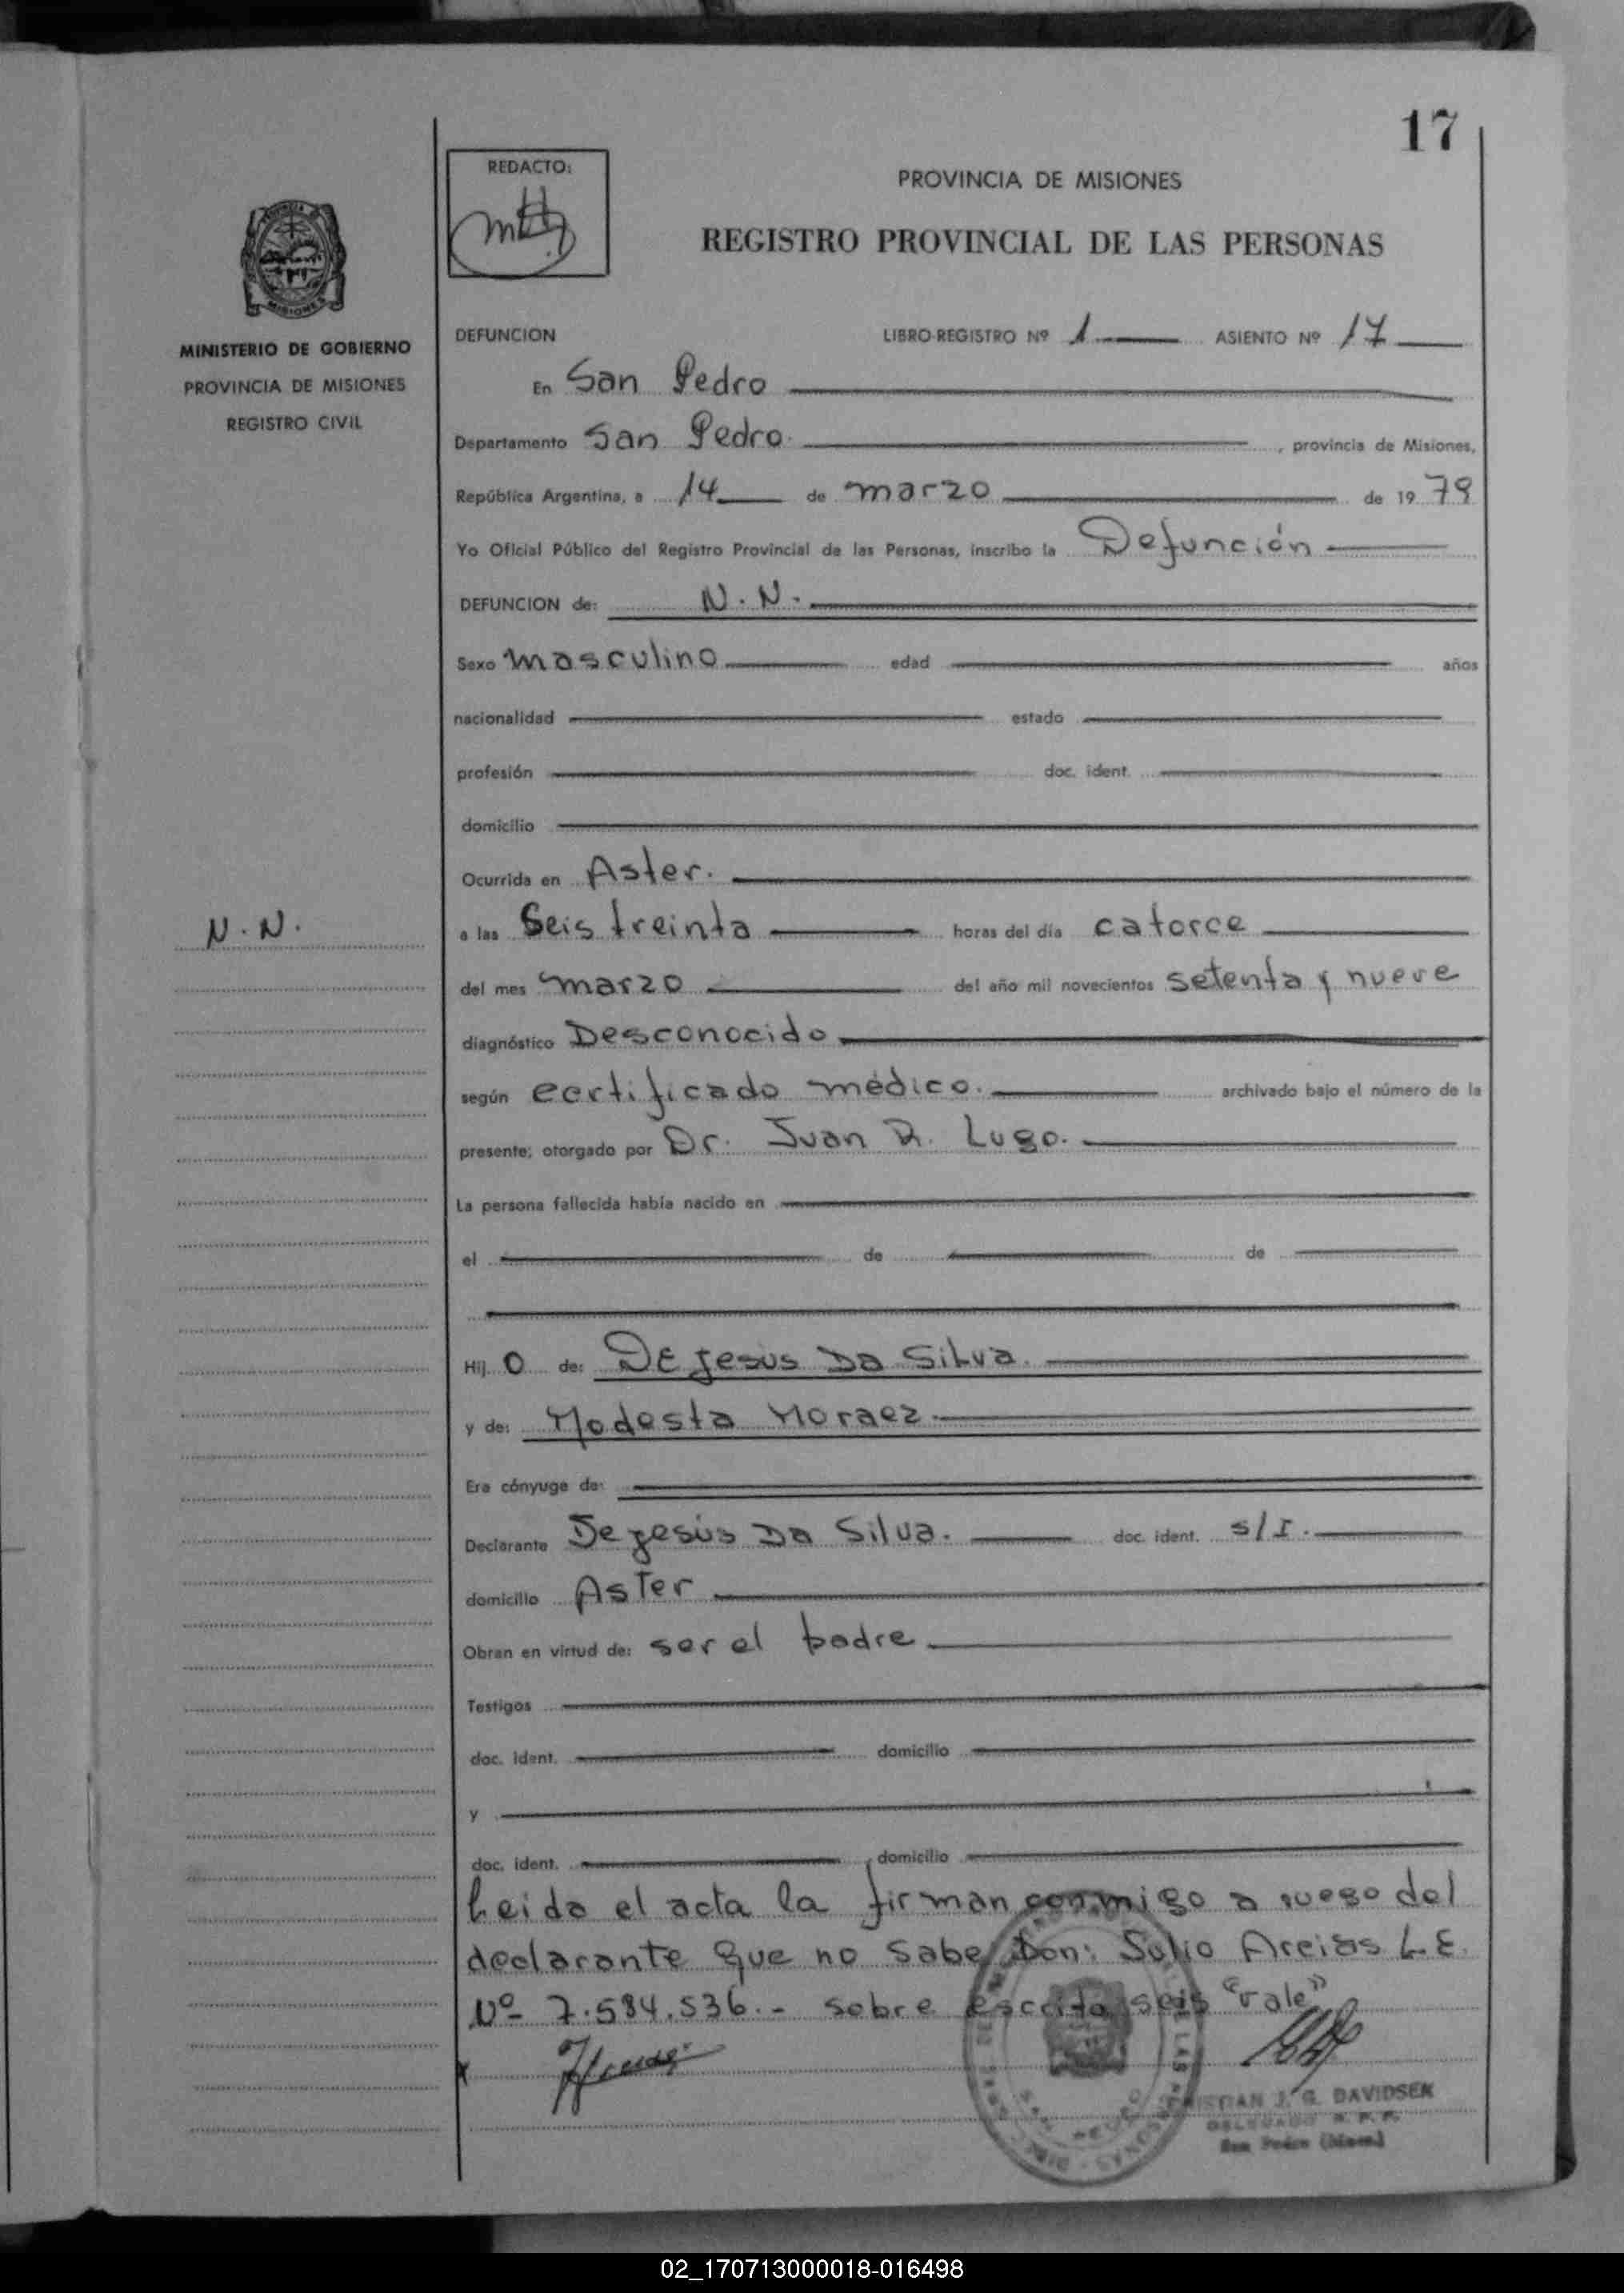 17
REDACTO:
PROVINCIA DE MISIONES
REGISTRO PROVINCIAL DE LAS PERSONAS
MINISTERIO DE GOBIERNO
PROVINCIA DE MISIONES
REGISTRO CIVIL
DEFUNCION LIBRO-REGISTRO Nº 1 ASIENTO Nº 17
En San Pedro
Departamento San Pedro. , provincia de Misiones,
República Argentina, a 14 de marzo de 19 79
Yo Oficial Público del Registro Provincial de las Personas, inscribo la Defunción
DEFUNCION de: N. N.
Sexo masculino edad años
nacionalidad estado
profesión doc. ident.
domicilio
Ocurrida en Aster.
N. N.
a las Seis treinta horas del día catorce
del mes marzo del año mil novecientos setenta y nueve
diagnóstico Desconocido
según certificado médico. archivado bajo el número de la
presente; otorgado por Dr. Juan R. Lugo.
La persona fallecida había nacido en
el de de
Hij o de: De Jesus Da Silva.
y de: Modesta Moraez
Era cónyuge de:
Declarante De Jesús Da Silva. doc. ident. S/I.
domicilio Aster
Obran en virtud de: ser el padre
Testigos
doc. ident. domicilio
y
doc. ident. domicilio
Leida el acta la firman conmigo a ruego del
declarante que no sabe Don: Julio Areias L.E.
Nº 7.584.536.- sobre escrito seis "vale"
J. G. DAVIDSEN
DELEGADO R. P. P.
San Pedro (Mnes.)
02_170713000018-016498